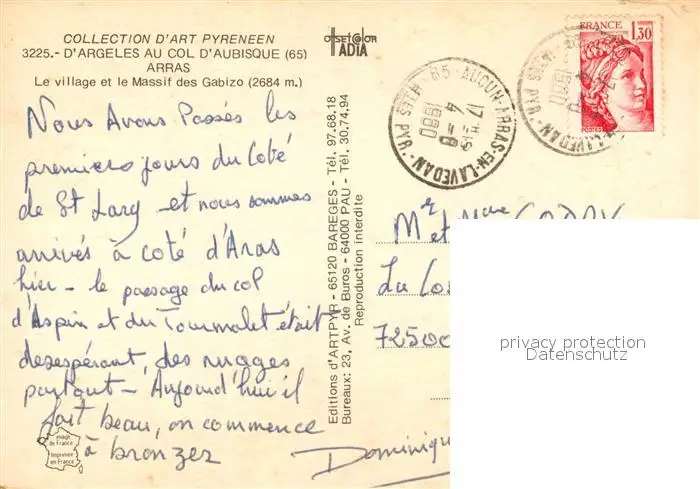 COLLECTION D'ART PYRENEEN
3225.- D'ARGELES AU COL D'AUBISQUE (65)
ARRAS
Le village et le Massif des Gabizo (2684 m.)
Nous Avons Passés les
premiers jours du Coté
de St Lary - et nous sommes
arrivés à coté d'Aras
hier - le passage du col
d'Aspin et du Tourmalet était
desespérant, des nuages
partout - Aujourd'hui il
fait beau, on commence
à bronzer
Dominiqu
image de France
Imprimée en France
Editions d'ARTPYR - 65120 BAREGES - Tél. 97.68.18
Bureaux: 23, Av. de Buros - 64000 PAU - Tél. 30.74.94
Reproduction interdite
OFFSET COLOR
IADIA
65 - AUCUN-ARRAS-EN-LAVEDAN - HTES PYR.
17 H
4 - 8
1980
FRANCE
1,30
POSTES
Mr et Mme
La
72500
privacy protection
Datenschutz